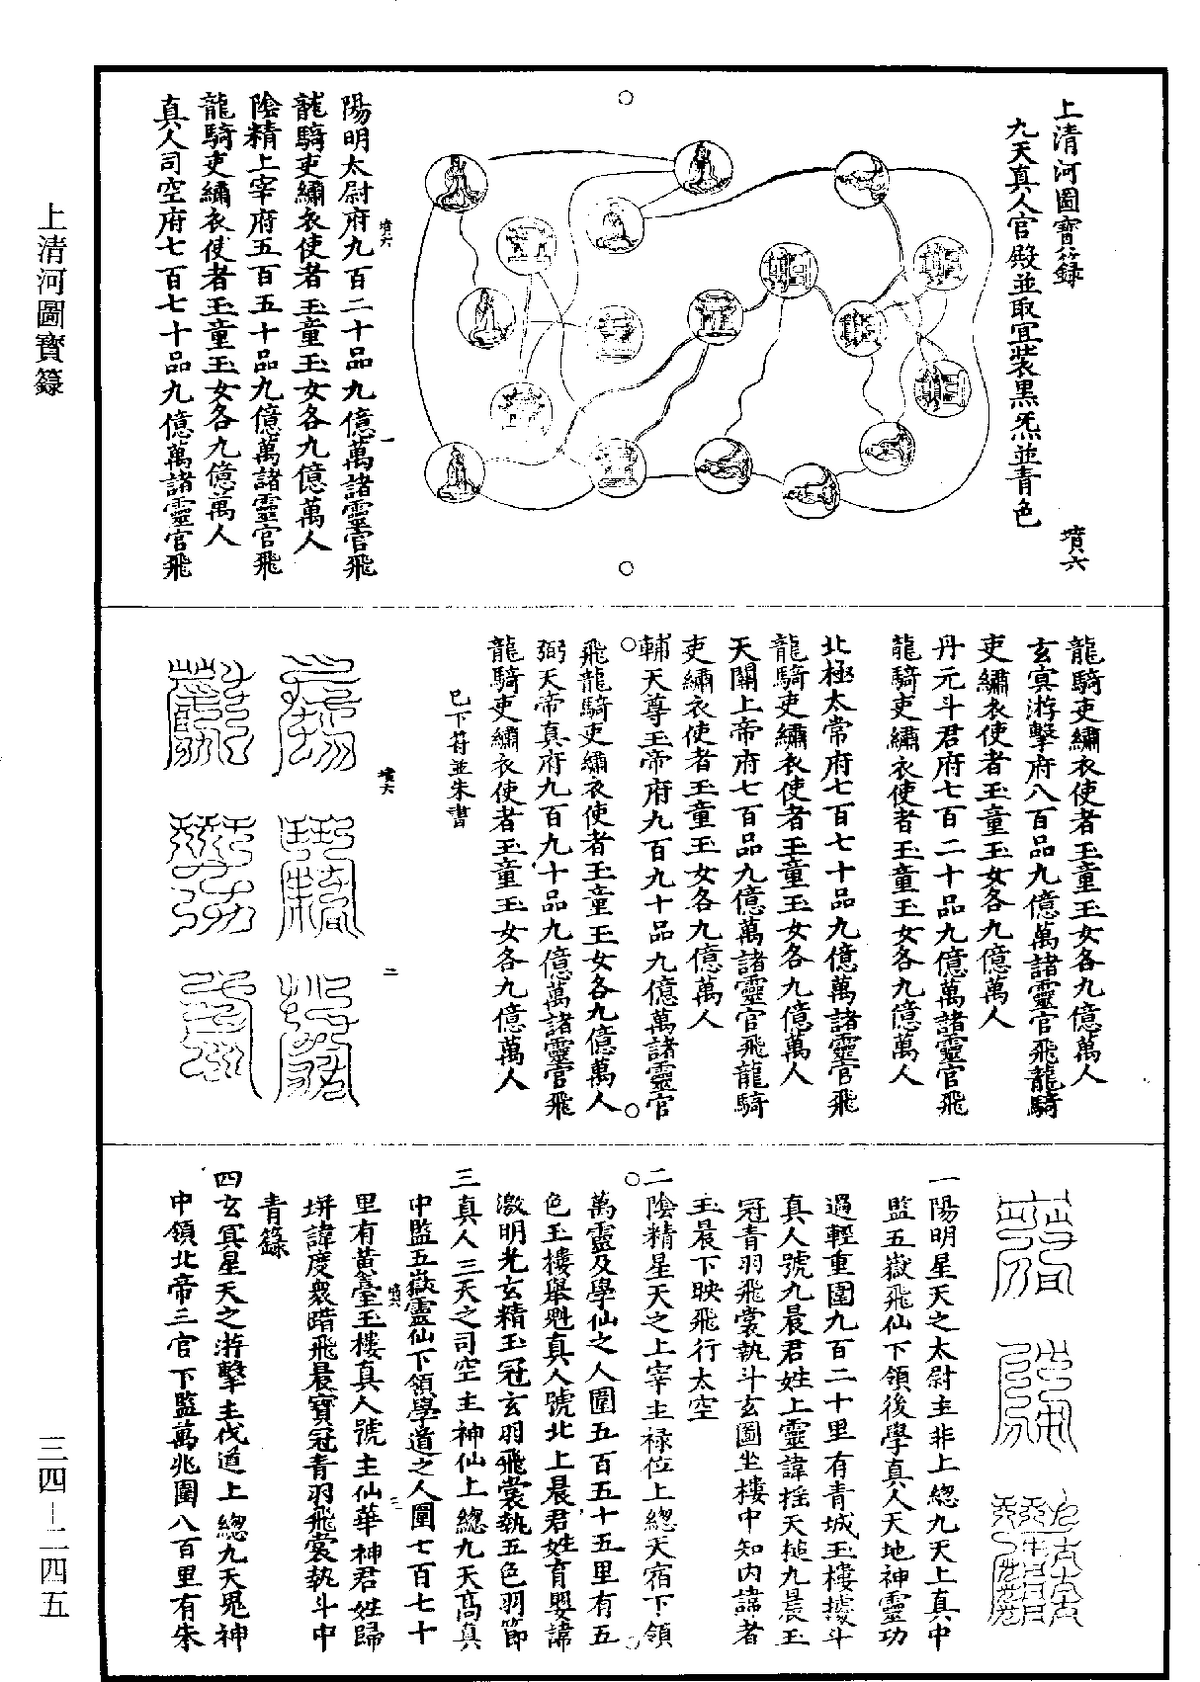 上清河圖寶籙
九天真人官殿並取宜裝黑炁並青色
墳六
陽明太尉府九百二十品九億萬諸靈官飛
龍騎吏繡衣使者玉童玉女各九億萬人
陰精上宰府五百五十品九億萬諸靈官飛
龍騎吏繡衣使者玉童玉女各九億萬人
真人司空府七百七十品九億萬諸靈官飛
墳六
一
龍騎吏繡衣使者玉童玉女各九億萬人
玄冥游擊府八百品九億萬諸靈官飛龍騎
吏繡衣使者玉童玉女各九億萬人
丹元斗君府七百二十品九億萬諸靈官飛
龍騎吏繡衣使者玉童玉女各九億萬人
北極太常府七百七十品九億萬諸靈官飛
龍騎吏繡衣使者玉童玉女各九億萬人
天關上帝府七百品九億萬諸靈官飛龍騎
吏繡衣使者玉童玉女各九億萬人
輔天尊玉帝府九百九十品九億萬諸靈官
飛龍騎吏繡衣使者玉童玉女各九億萬人
弼天帝真府九百九十品九億萬諸靈官飛
龍騎吏繡衣使者玉童玉女各九億萬人
巳下符並朱書
墳六
二
一陽明星天之太尉主非上總九天上真中
監五嶽飛仙下領後學真人天地神靈功
過輕重圍九百二十里有青城玉樓據斗
真人號九晨君姓上靈諱搖天槌九晨玉
冠青羽飛裳執斗玄圖坐樓中知內諱者
玉晨下映飛行太空
二陰精星天之上宰主祿位上總天宿下領
萬靈及學仙之人圍五百五十五里有五
色玉樓舉魁真人號北上晨君姓育嬰諱
激明光玄精玉冠玄羽飛裳執五色羽節
三真人三天之司空主神仙上總九天高真
中監五嶽靈仙下領學道之人圍七百七十
里有黃臺玉樓真人號主仙華神君姓歸
埘諱度衆暗飛晨寶冠青羽飛裳執斗中
青籙
墳六
三
四玄冥星天之游擊主伐道上總九天鬼神
中領北帝三官下監萬兆圍八百里有朱
上清河圖寶籙
三四－二四五